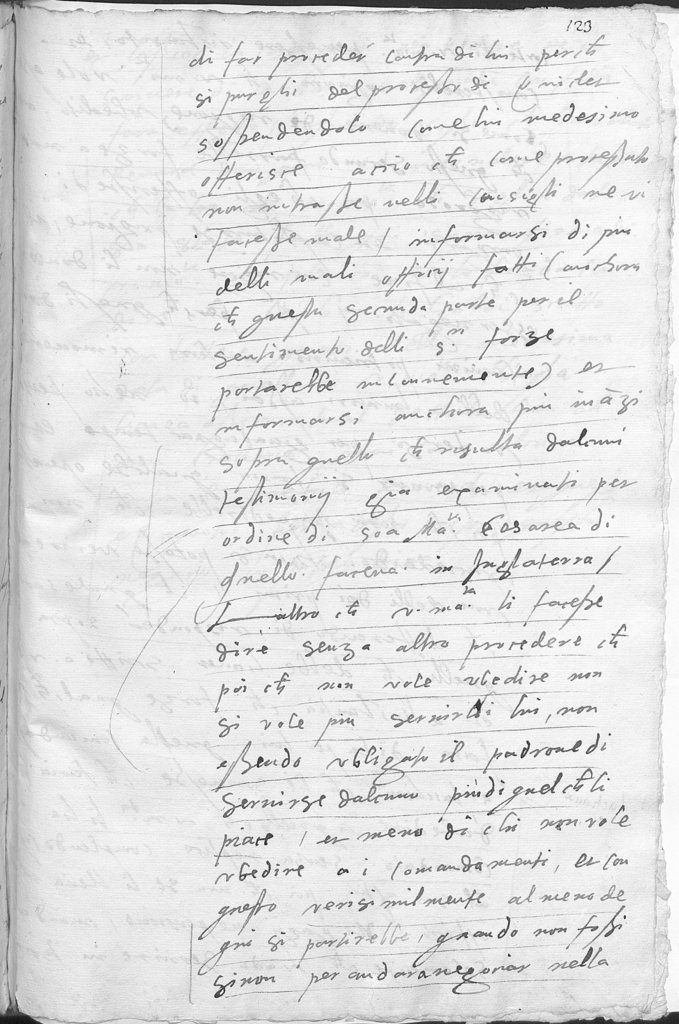 123
di far proceder contra di lui perch
si purghi del processo di
sospendendolo come lui medesimo
offerisce accio ch come processato
non intrasse nelli consigli ne vi
facesse male / informarsi di piu
delli mali officij fatti (anchora
ch questa seconda parte per il
sentimento delli s.ri forze
portarebbe inconveniente) et
informarsi anchora piu inãzi
sopra quello ch risulta dalcuni
testimonij gia examinati per
ordine di soa Ma.ta Cesarea di
quello faceva in Inglaterra /
L altro ch v. ma.ta li facesse
dire senza altro procedere ch
poi ch non vole ubedire non
si vole piu servir di lui, non
essendo ubligato il padrone di
servirse dalcuno piu di quel ch li
piace / et meno di chi non vole
ubedire a i comandamenti, et con
questo verisimilmente al meno de
qui si partirebbe, quando non fossi
sinon per andar a negociar nella